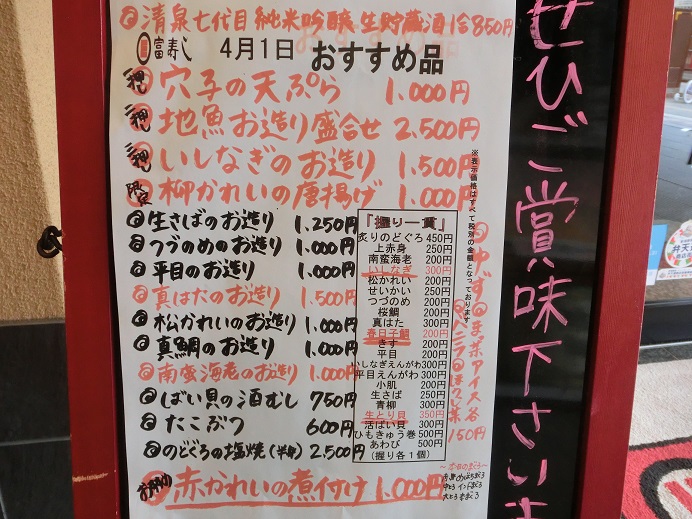 清泉七代目 純米吟醸 生貯蔵酒 1合 850円
富寿し 4月1日 おすすめ品
二押し 穴子の天ぷら 1.000円
二押し 地魚お造り盛合せ 2.500円
二押し いしなぎのお造り 1.500円
限定 柳かれいの唐揚げ 1.000円
生さばのお造り 1.250円
つづのめのお造り 1.000円
平目のお造り 1.000円
真はたのお造り 1.500円
松かれいのお造り 1.000円
真鯛のお造り 1.000円
南蛮海老のお造り 1.000円
ばい貝の酒むし 750円
たこぶつ 600円
のどぐろの塩焼(半身) 2.500円
赤かれいの煮付け 1.000円
「握り一貫」
炙りのどぐろ 450円
上赤身 250円
南蛮海老 200円
いしなぎ 300円
松かれい 200円
せいかい 250円
つづのめ 200円
桜鯛 200円
真はた 300円
春日子鯛 200円
きす 200円
平目 200円
いしなぎえんがわ 300円
平目えんがわ 300円
小肌 200円
生さば 250円
青柳 200円
生とり貝 350円
活ばい貝 300円
ひもきゅう巻 500円
あわび 500円
(握り各1個)
※表示価格はすべて税別の金額となっております
ゆず
抹茶アイス各150円
バニラ
ほうじ茶
〜本日のまぐろ〜
ぜひご賞味下さいま